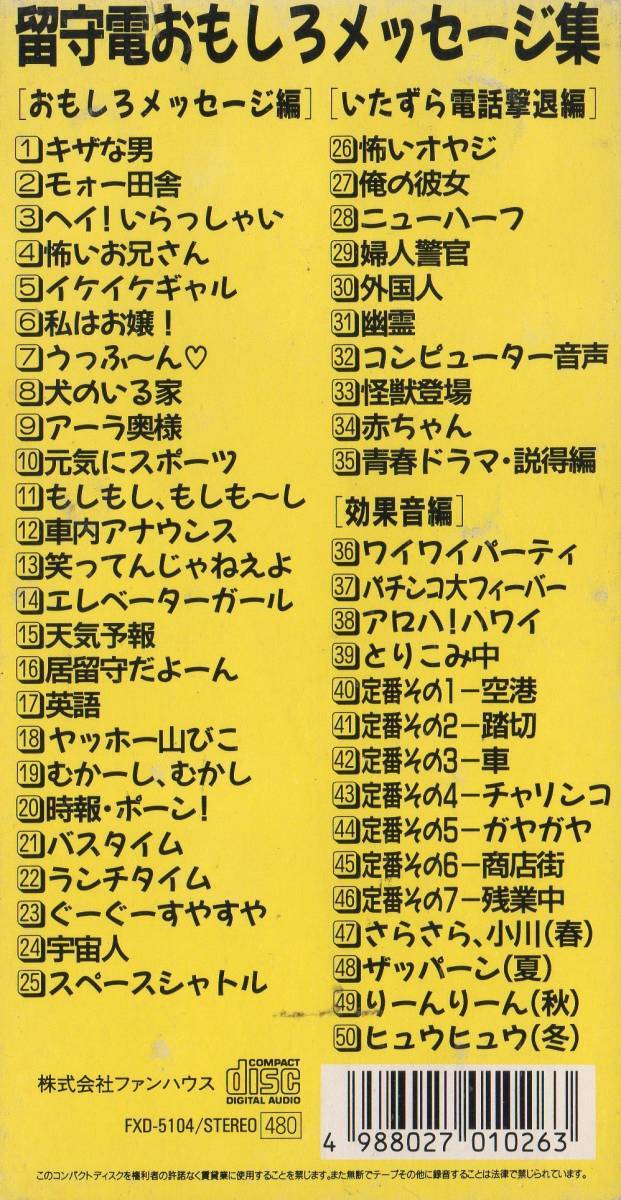 留守電おもしろメッセージ集
[おもしろメッセージ編]
1 キザな男
2 モォー田舎
3 ヘイ!いらっしゃい
4 怖いお兄さん
5 イケイケギャル
6 私はお嬢!
7 うっふ〜ん♡
8 犬のいる家
9 アーラ奥様
10 元気にスポーツ
11 もしもし、もしも〜し
12 車内アナウンス
13 笑ってんじゃねえよ
14 エレベーターガール
15 天気予報
16 居留守だよーん
17 英語
18 ヤッホー山びこ
19 むかーし、むかし
20 時報・ポーン!
21 バスタイム
22 ランチタイム
23 ぐーぐーすやすや
24 宇宙人
25 スペースシャトル
[いたずら電話撃退編]
26 怖いオヤジ
27 俺の彼女
28 ニューハーフ
29 婦人警官
30 外国人
31 幽霊
32 コンピューター音声
33 怪獣登場
34 赤ちゃん
35 青春ドラマ・説得編
[効果音編]
36 ワイワイパーティ
37 パチンコ大フィーバー
38 アロハ!ハワイ
39 とりこみ中
40 定番その1−空港
41 定番その2−踏切
42 定番その3−車
43 定番その4−チャリンコ
44 定番その5−ガヤガヤ
45 定番その6−商店街
46 定番その7−残業中
47 さらさら、小川(春)
48 ザッパーン(夏)
49 りーんりーん(秋)
50 ヒュウヒュウ(冬)
株式会社ファンハウス
COMPACT
disc
DIGITAL AUDIO
FXD-5104/STEREO 480
4 988027 010263
このコンパクトディスクを権利者の許諾なく賃貸業に使用することを禁じます。また無断でテープその他に録音することは法律で禁じられています。